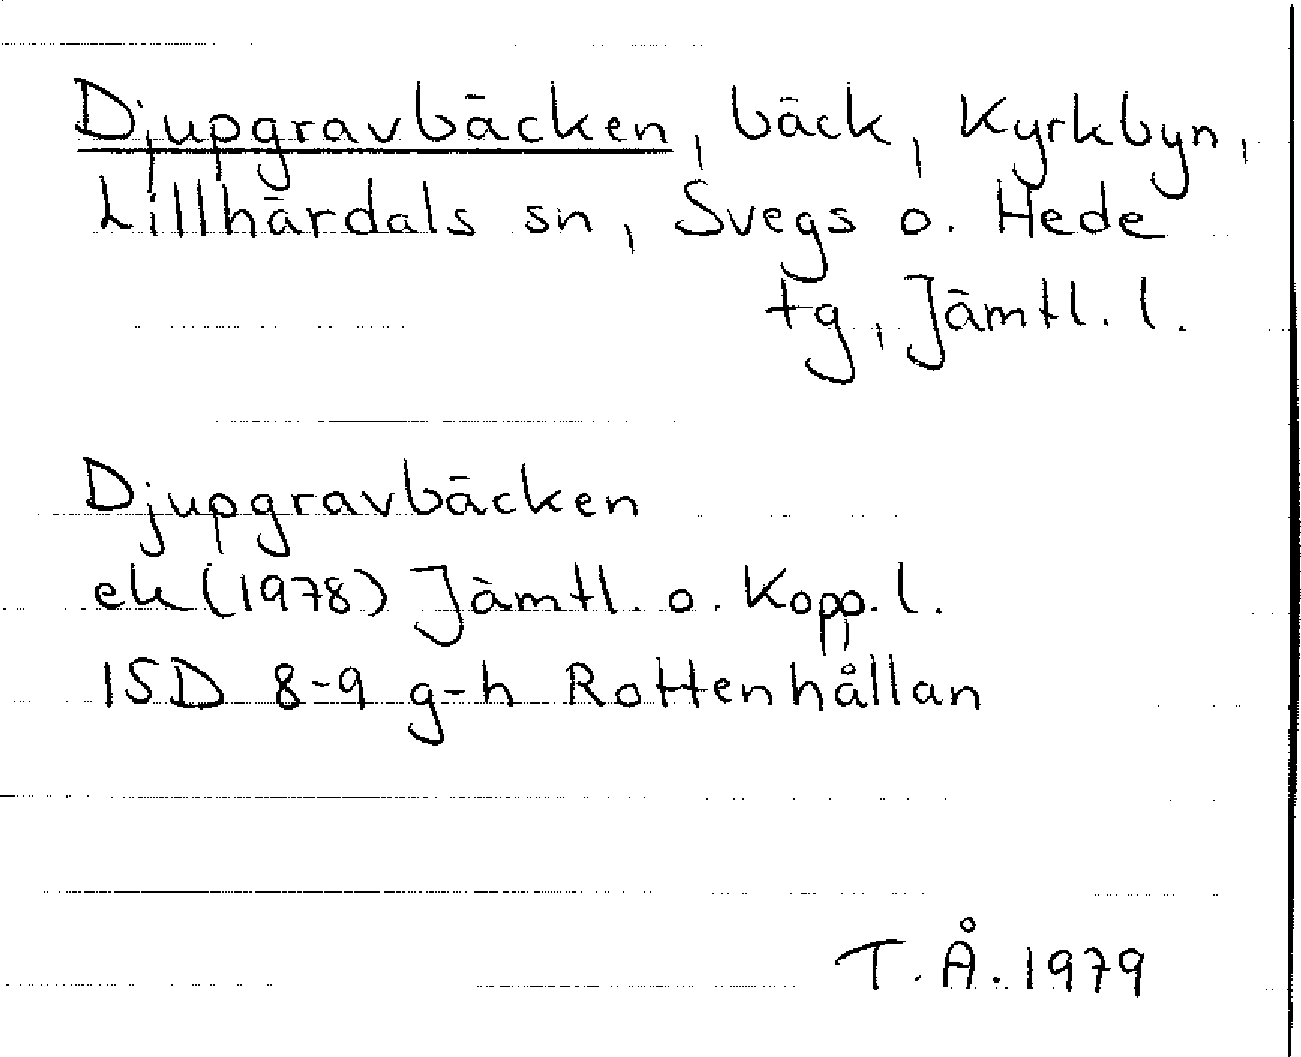 Djupgravbäcken, bäck, Kyrkbyn,
Lillhärdals sn, Svegs o. Hede
tg, Jämtl. l.
Djupgravbäcken
ek (1978) Jämtl. o. Kopp. l.
15D 8-9 g-h Rottenhållan
T.Å. 1979